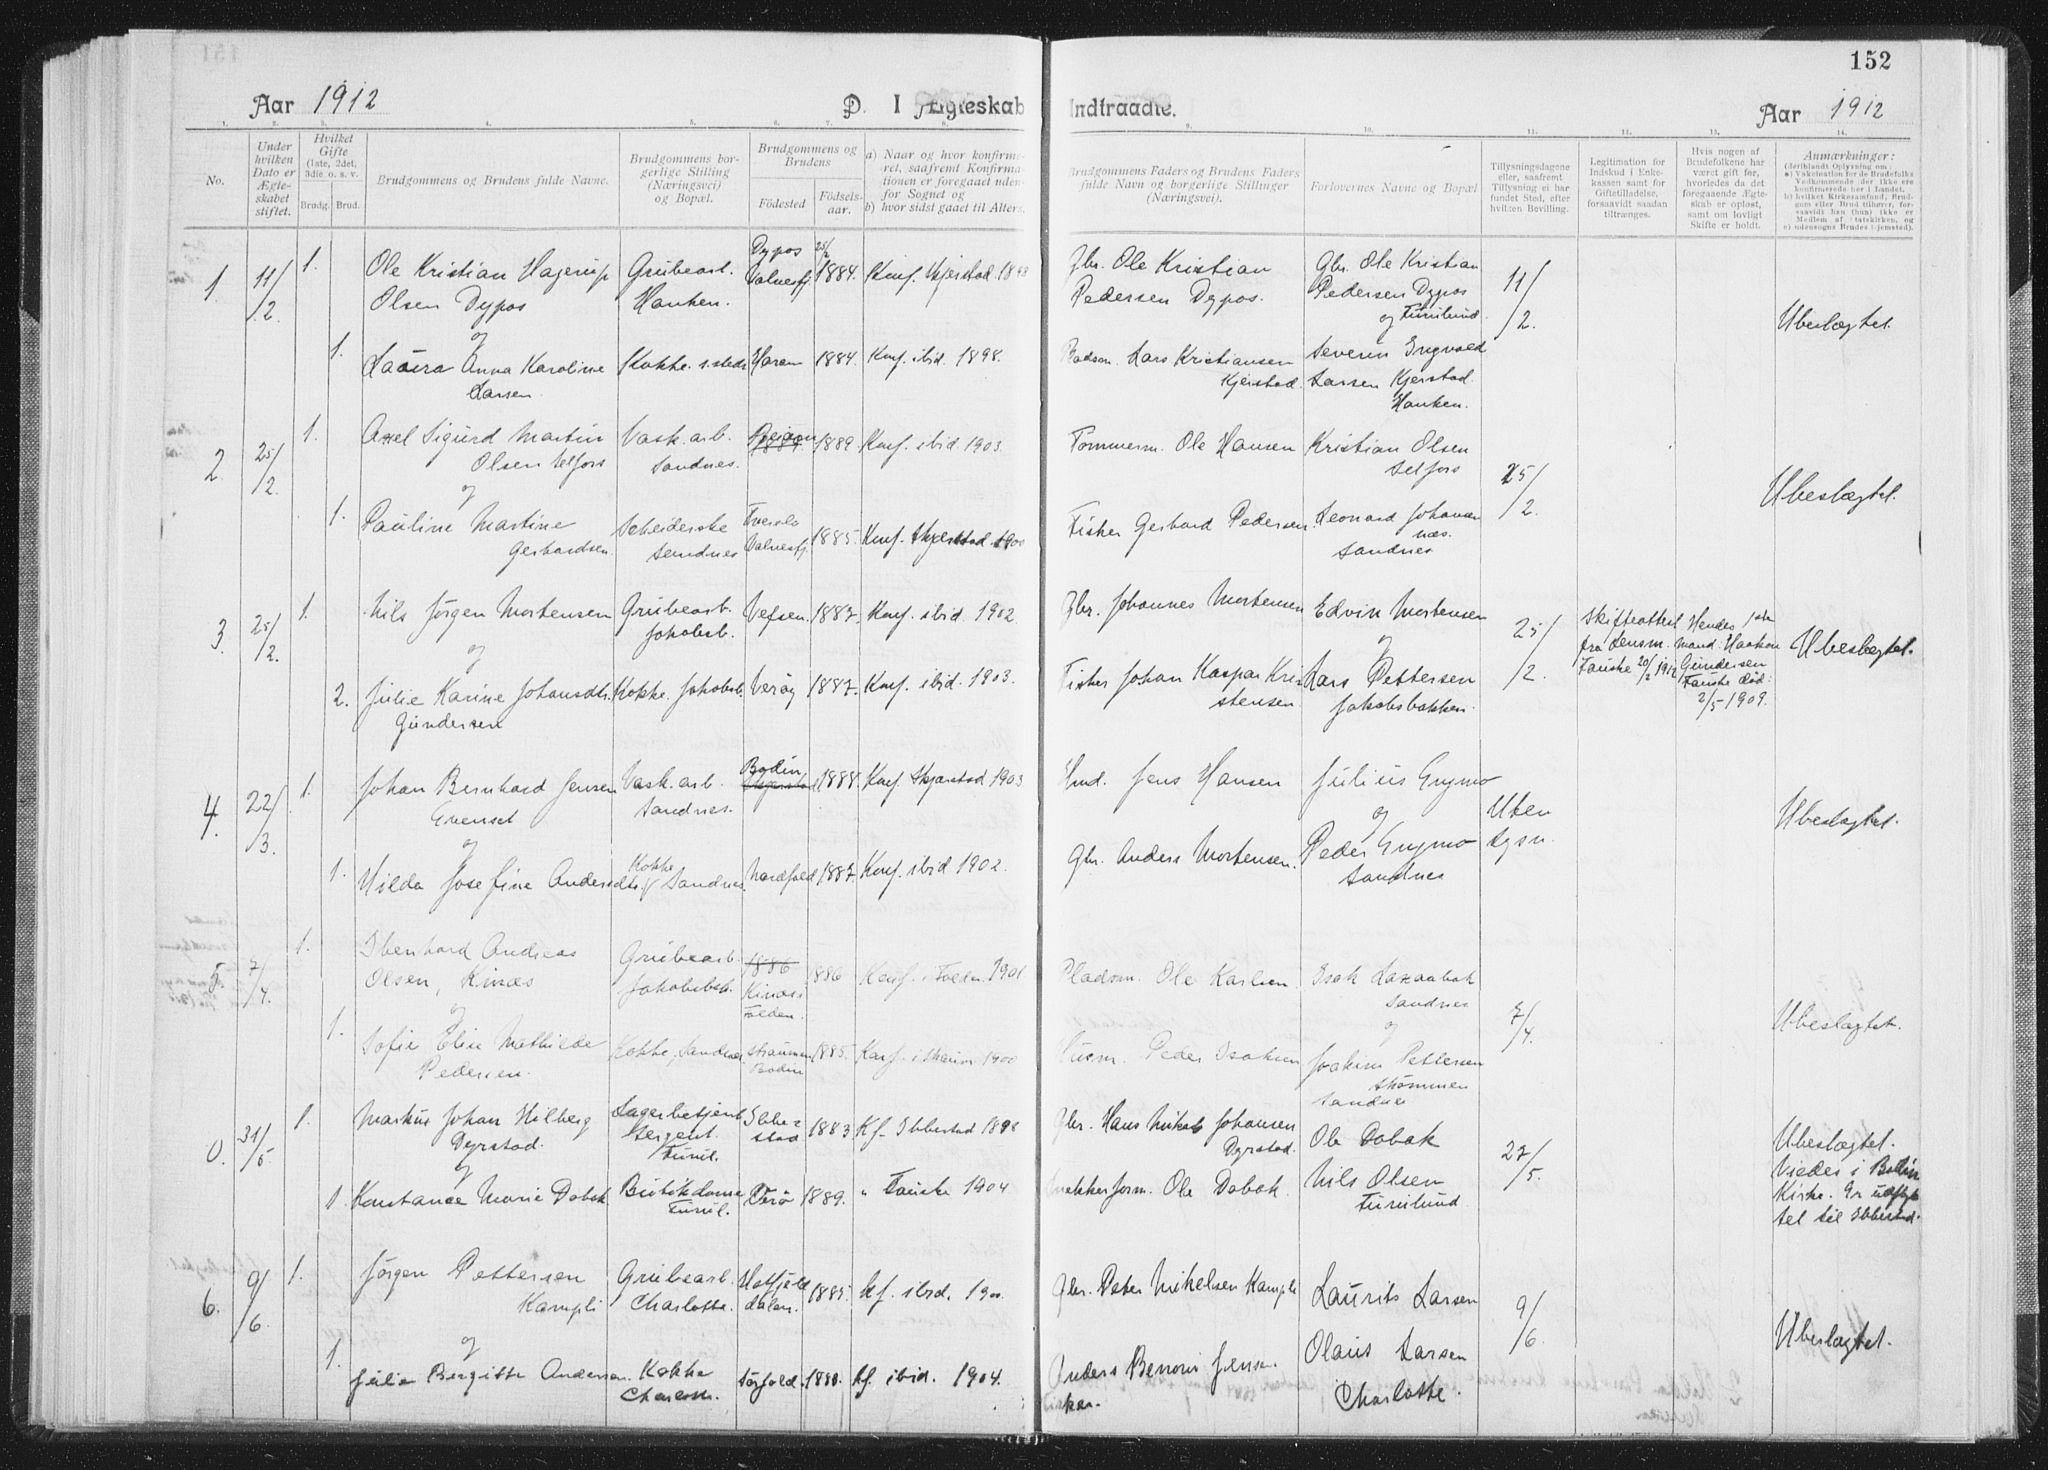 152
Aar 1912
D. I Ægteskab Indtraadte.
Aar 1912
1. 2. 3. 4. 5. 6. 7. 8. 9. 10. 11. 12. 13. 14.
No.
Under hvilken Dato er Ægteskabet stiftet.
Hvilket Gifte (1ste, 2det, 3die o. s. v.
Brudg. Brud.
Brudgommens og Brudens fulde Navne.
Brudgommens borgerlige Stilling (Næringsvei) og Bopæl.
Brudgommens og Brudens
Fødested
Fødselsaar.
a) Naar og hvor konfirmeret, saafremt Konfirmationen er foregaaet udenfor Sognet og
b) hvor sidst gaaet til Alters.
Brudgommens Faders og Brudens Faders fulde Navn og borgerlige Stillinger (Næringsvei).
Forlovernes Navne og Bopæl
Tillysningsdagene eller, saafremt Tillysning ei har fundet Sted, efter hvilken Bevilling.
Legitimation for Indskud i Enkekassen samt for Giftetilladelse, forsaavidt saadan tiltrænges.
Hvis nogen af Brudefolkene har været gift før, hvorledes da det foregaaende Ægteskab er opløst, samt om lovligt Skifte er holdt.
Anmærkninger:
1 11/2. 1. Ole Kristian Hagerup Olsen Dypos
Grubearb. Hanken.
Dypos Valnesfj. 25/2 1884. Konf. Skjerstad 1898
Gbr. Ole Kristian Pedersen Dypos.
Gbr. Ole Kristian Pedersen Dypos og Furulund
11/2.
Ubeslægtet.
og
1. Laura Anna Karoline Larsen
Kokke s. steds Haram 1884. Konf. ibid. 1898.
Lars Kristiansen Kjerstad.
Severin Ingvald Larsen Kjerstad. Hanken.
2 25/2. 1. Axel Sigurd Martin Olsen Selfors
Vask.arb. Sandnes.
1889 Konf. ibid 1903.
Tømmerm. Ole Hansen
Kristian Olsen Selfors
25/2.
Ubeslægtet.
og
1. Pauline Martine Gerhardsen
Skeiderske Sandnes
Valnesfj. 1885. Konf. Skjerstad 1900
Fisker Gerhard Pedersen.
Leonard Johansen
Sandnes
3. 25/2. 1. Nils Jörgen Mortensen
Grubearb. Jakobsb.
Vefsen. 1887. Konf. ibid. 1902.
Gbr. Johannes Mortensen
Edvin Mortensen
og
25/2.
Skifteattest fra Lensm. Fauske 20/2 1912
Hendes 1ste mand: Haakon Gundersen Fauske död: 2/5-1909.
Ubeslægtet.
og
2. Julie Karine Johansdtr. Gundersen
Kokke. Jakobsb. Værøy 1887. Konf. ibid. 1903.
Fisker Johan Kaspar Kristensen
Lars Pettersen Jakobsbakken.
4. 22/3. 1. Johan Bernhard Jensen Evenset
Vask.arb. Sandnes.
Bodin 1888. Konf. Skjerstad 1903
Hmd. Jens Hansen
Julius Engmo
og
Uten lysn.
Ubeslægtet.
og
1. Hilda Josefine Andersdtr.
Kokke Sandnes. Nordfold 1887. Konf. ibid 1902.
Gbr. Anders Mortensen.
Peder Engmo Sandnes
5 7/4. 1. Ibenhard Andreas Olsen, Kinæs
Grubearb. Jakobsbk.
1886 Kinæs i Folden. 1886 Konf. i Folden 1901
Pladsm. Ole Karlsen
Isak Sandnes
og
7/4.
Ubeslægtet.
og
1. Sofie Elise Mathilde Pedersen.
Kokke, Sandnes Straumen Bodin 1885. Konf. i 1900
Husm. Peder Isaksen
Joakim Pettersen Strømmen Sandnes
0. 31/5. 1. Markus Johan Hilberg Dyrstad.
Lagerbetjent Sergent. Furul.
Ibbestad 1883 Kf. Ibbestad 1898
Gbr. Hans Mikal Johansen Dyrstad.
Ole Dobak
27/5.
Ubeslægtet. Viedes i Bodin Kirke. Er udflyttet til Ibbestad.
og
1. Konstance Marie Dobak
Butikdame Furul. 1889. " Fauske 1904
Ole Dobak.
Nils Olsen Furulund
6. 9/6. 1. Jörgen Pettersen Kampli
Grubearb. Charlotte.
Hatfjelddalen. 1885. Kf. ibid. 1900.
Gbr. Peter Mikelsen Kampli
Laurits Larsen
9/6.
Ubeslægtet.
og
1. Julie Bergitte Andersen.
Kokke Charlott. Sörfold. 1880. Kf. ibid. 1904.
Anders Benoni Jensen Fisker.
Olaus Larsen Charlotte.